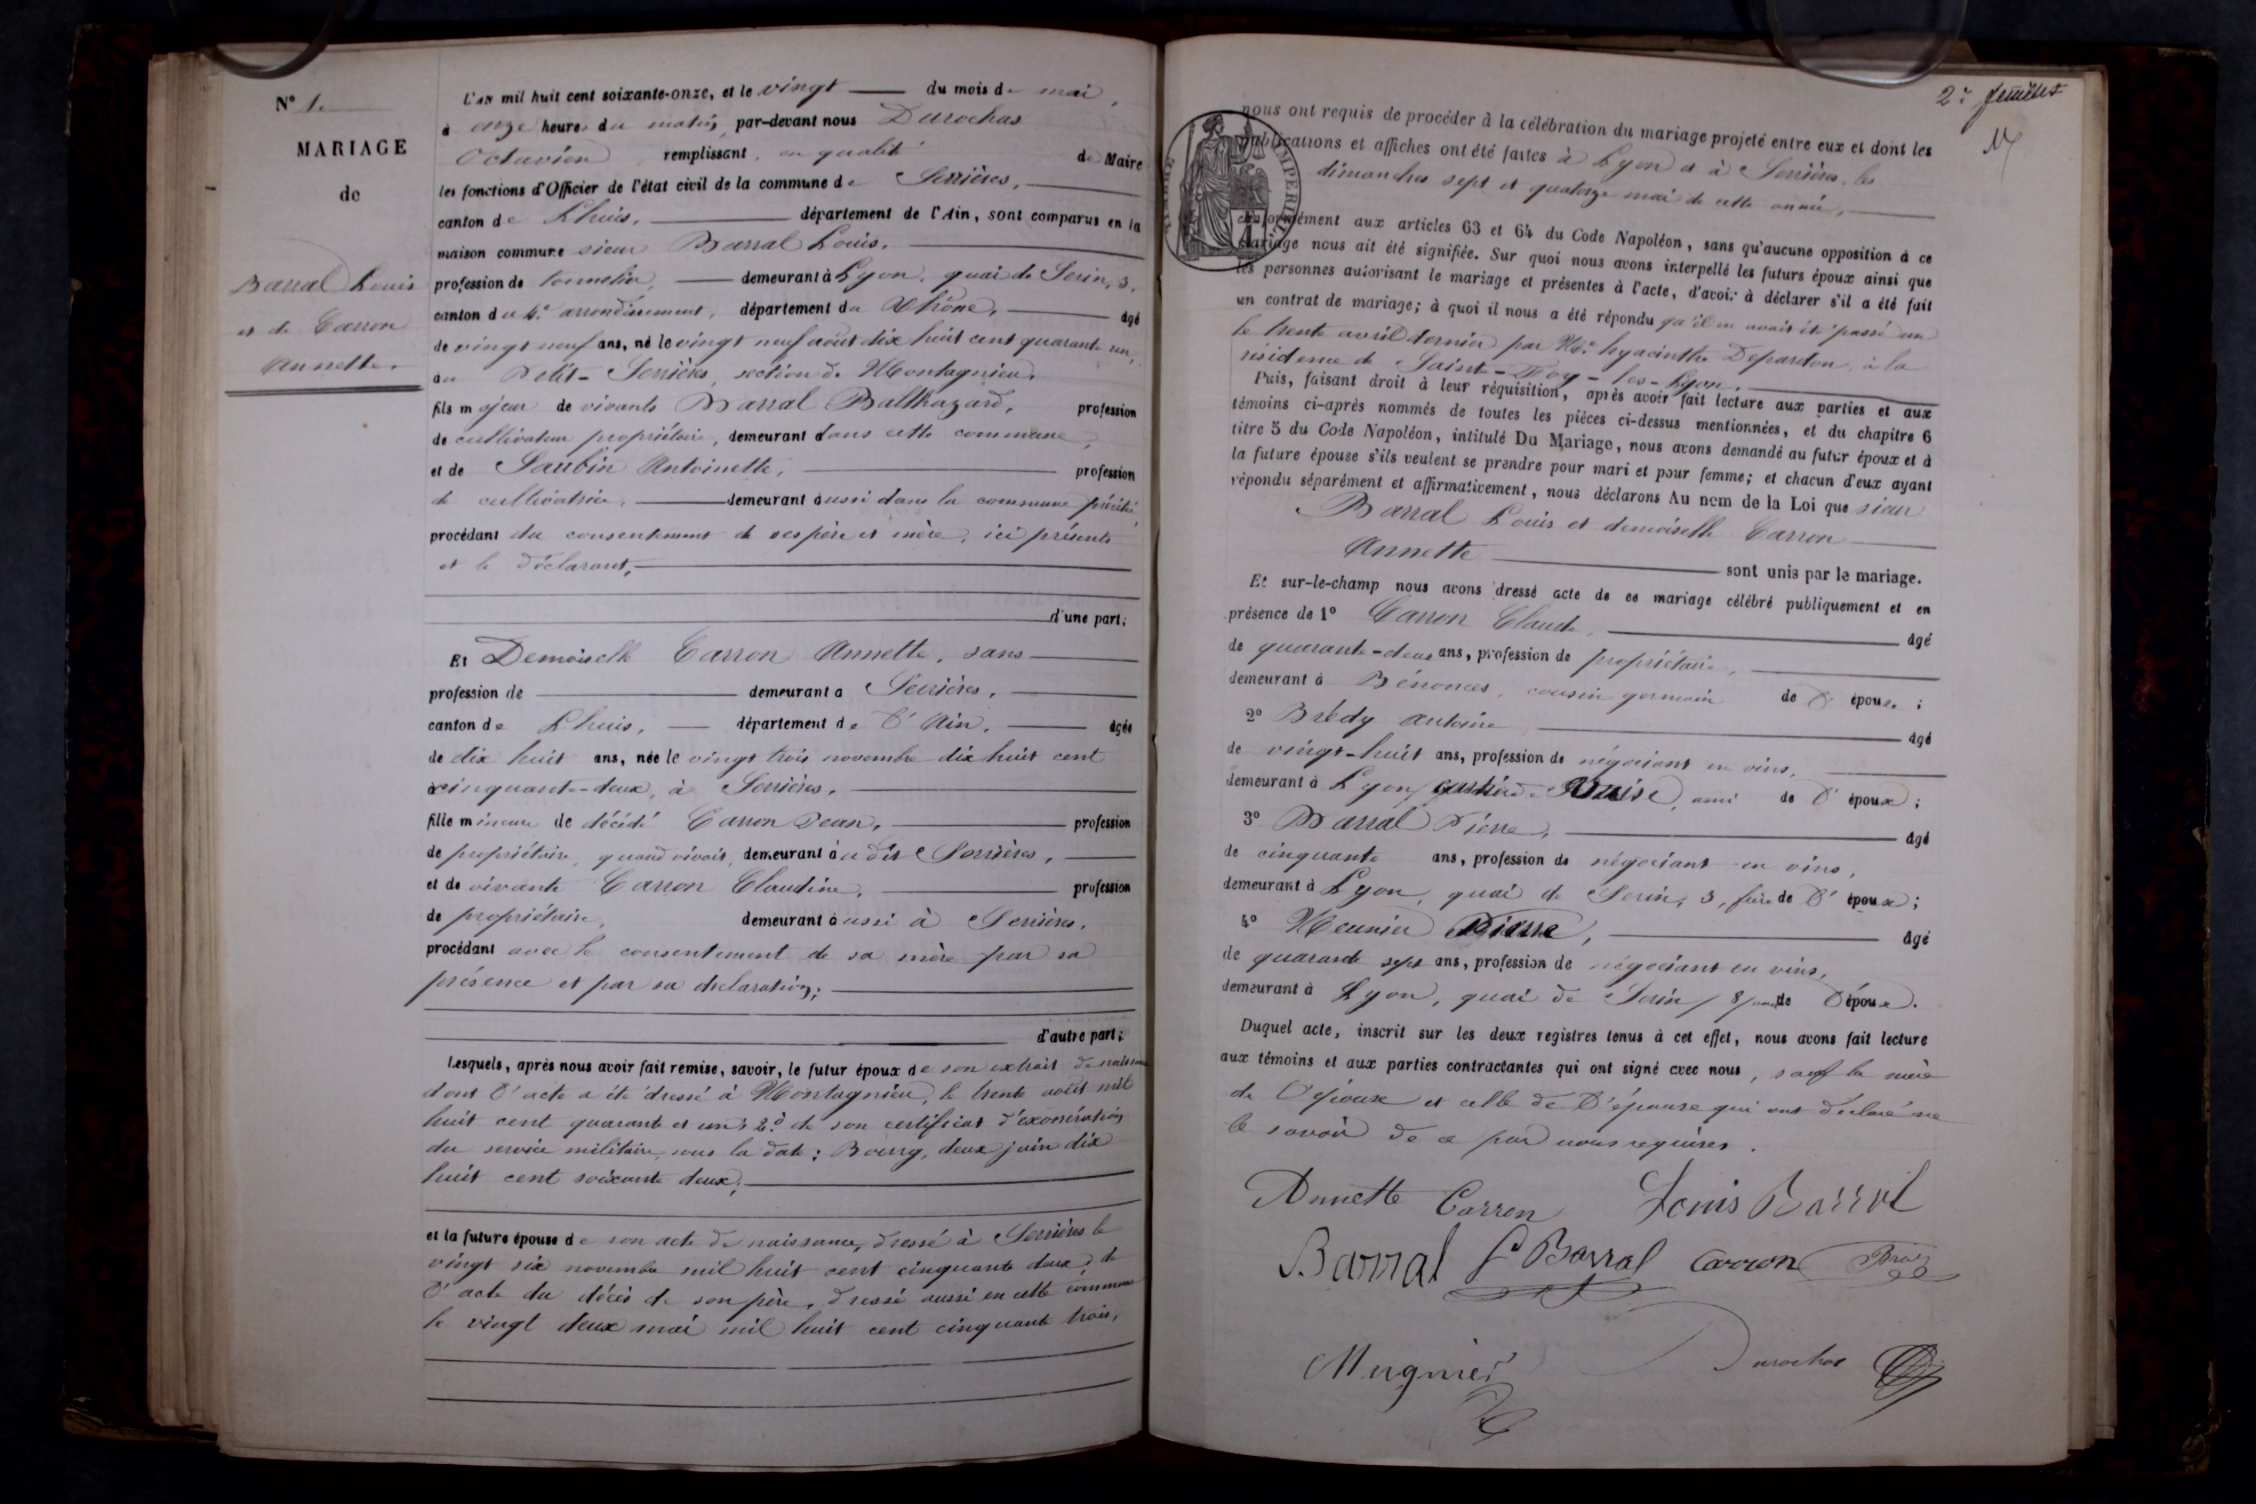 N° 1.
MARIAGE
de
Barral Louis
et de Carron
Annette.
L'an mil huit cent soixante-onze, et le vingt du mois de mai,
à onze heures du matin, par-devant nous Durochas
Octavien remplissant, en qualité de Maire
les fonctions d'Officier de l'état civil de la commune de Serrières,
canton de Lhuis, département de l'Ain, sont comparus en la
maison commune sieur Barral Louis,
profession de tonnelier, demeurant à Lyon, quai de Serin, 3,
canton du 4e arrondissement, département du Rhône, âgé
de vingt neuf ans, né le vingt neuf août dix huit cent quarante un,
au Petit-Serrières, section de Montagnieu,
fils majeur de vivants Barral Balthazard, profession
de cultivateur propriétaire, demeurant dans cette commune,
et de Saubin Antoinette, profession
de cultivatrice, demeurant aussi dans la commune précitée,
procédant du consentement de ses père et mère, ici présents
et le déclarant,
d'une part;
Et Demoiselle Carron Annette, sans
profession de demeurant à Serrières,
canton de Lhuis, département de l'Ain, âgée
de dix huit ans, née le vingt trois novembre dix huit cent
cinquante-deux, à Serrières,
fille mineure de décédé Carron Jean, profession
de propriétaire, quand vivait, demeurant au dit Serrières,
et de vivante Carron Claudine, profession
de propriétaire, demeurant aussi à Serrières,
procédant avec le consentement de sa mère par sa
présence et par sa déclaration;
d'autre part;
Lesquels, après nous avoir fait remise, savoir, le futur époux de son extrait de naissance
dont l'acte a été dressé à Montagnieu, le trente août mil
huit cent quarante et un; 2° de son certificat d'exonération
du service militaire, sous la date: Bourg, deux juin dix
huit cent soixante deux;
et la future épouse de son acte de naissance, dressé à Serrières le
vingt six novembre mil huit cent cinquante deux; de
l'acte du décès de son père, dressé aussi en cette commune
le vingt deux mai mil huit cent cinquante trois,
2e feuillet
TIMBRE IMPERIAL
nous ont requis de procéder à la célébration du mariage projeté entre eux et dont les
publications et affiches ont été faites à Lyon et à Serrières, les
dimanches sept et quatorze mai de cette année,
conformément aux articles 63 et 64 du Code Napoléon, sans qu'aucune opposition à ce
mariage nous ait été signifiée. Sur quoi nous avons interpellé les futurs époux ainsi que
les personnes autorisant le mariage et présentes à l'acte, d'avoir à déclarer s'il a été fait
un contrat de mariage; à quoi il nous a été répondu qu'il en avait été passé un
le trente avril dernier par Me hyacinthe Depardon, à la
résidence de Saint-Foy-les-Lyon.
Puis, faisant droit à leur réquisition, après avoir fait lecture aux parties et aux
témoins ci-après nommés de toutes les pièces ci-dessus mentionnées, et du chapitre 6
titre 5 du Code Napoléon, intitulé Du Mariage, nous avons demandé au futur époux et à
la future épouse s'ils veulent se prendre pour mari et pour femme; et chacun d'eux ayant
répondu séparément et affirmativement, nous déclarons Au nom de la Loi que sieur
Barral Louis et demoiselle Carron
Annette sont unis par le mariage.
Et sur-le-champ nous avons dressé acte de ce mariage célébré publiquement et en
présence de 1° Carron Claude, âgé
de quarante-deux ans, profession de propriétaire,
demeurant à Bénonces, cousin germain de l'épouse;
2° Brédy Antoine âgé
de vingt-huit ans, profession de négociant en vins,
demeurant à Lyon, ami de l'époux;
3° Barral Pierre, âgé
de cinquante ans, profession de négociant en vins,
demeurant à Lyon, quai de Serin, 3, frère de l'époux;
4° Meunier Pierre, âgé
de quarante sept ans, profession de négociant en vins,
demeurant à Lyon, quai de Serin, 8, de l'époux.
Duquel acte, inscrit sur les deux registres tenus à cet effet, nous avons fait lecture
aux témoins et aux parties contractantes qui ont signé avec nous, sauf la mère
de l'époux et celle de l'épouse qui ont déclaré ne
le savoir de ce par nous requises.
Annette Carron Louis Barral
Barral P Barral Carron
Mugnier Durochas